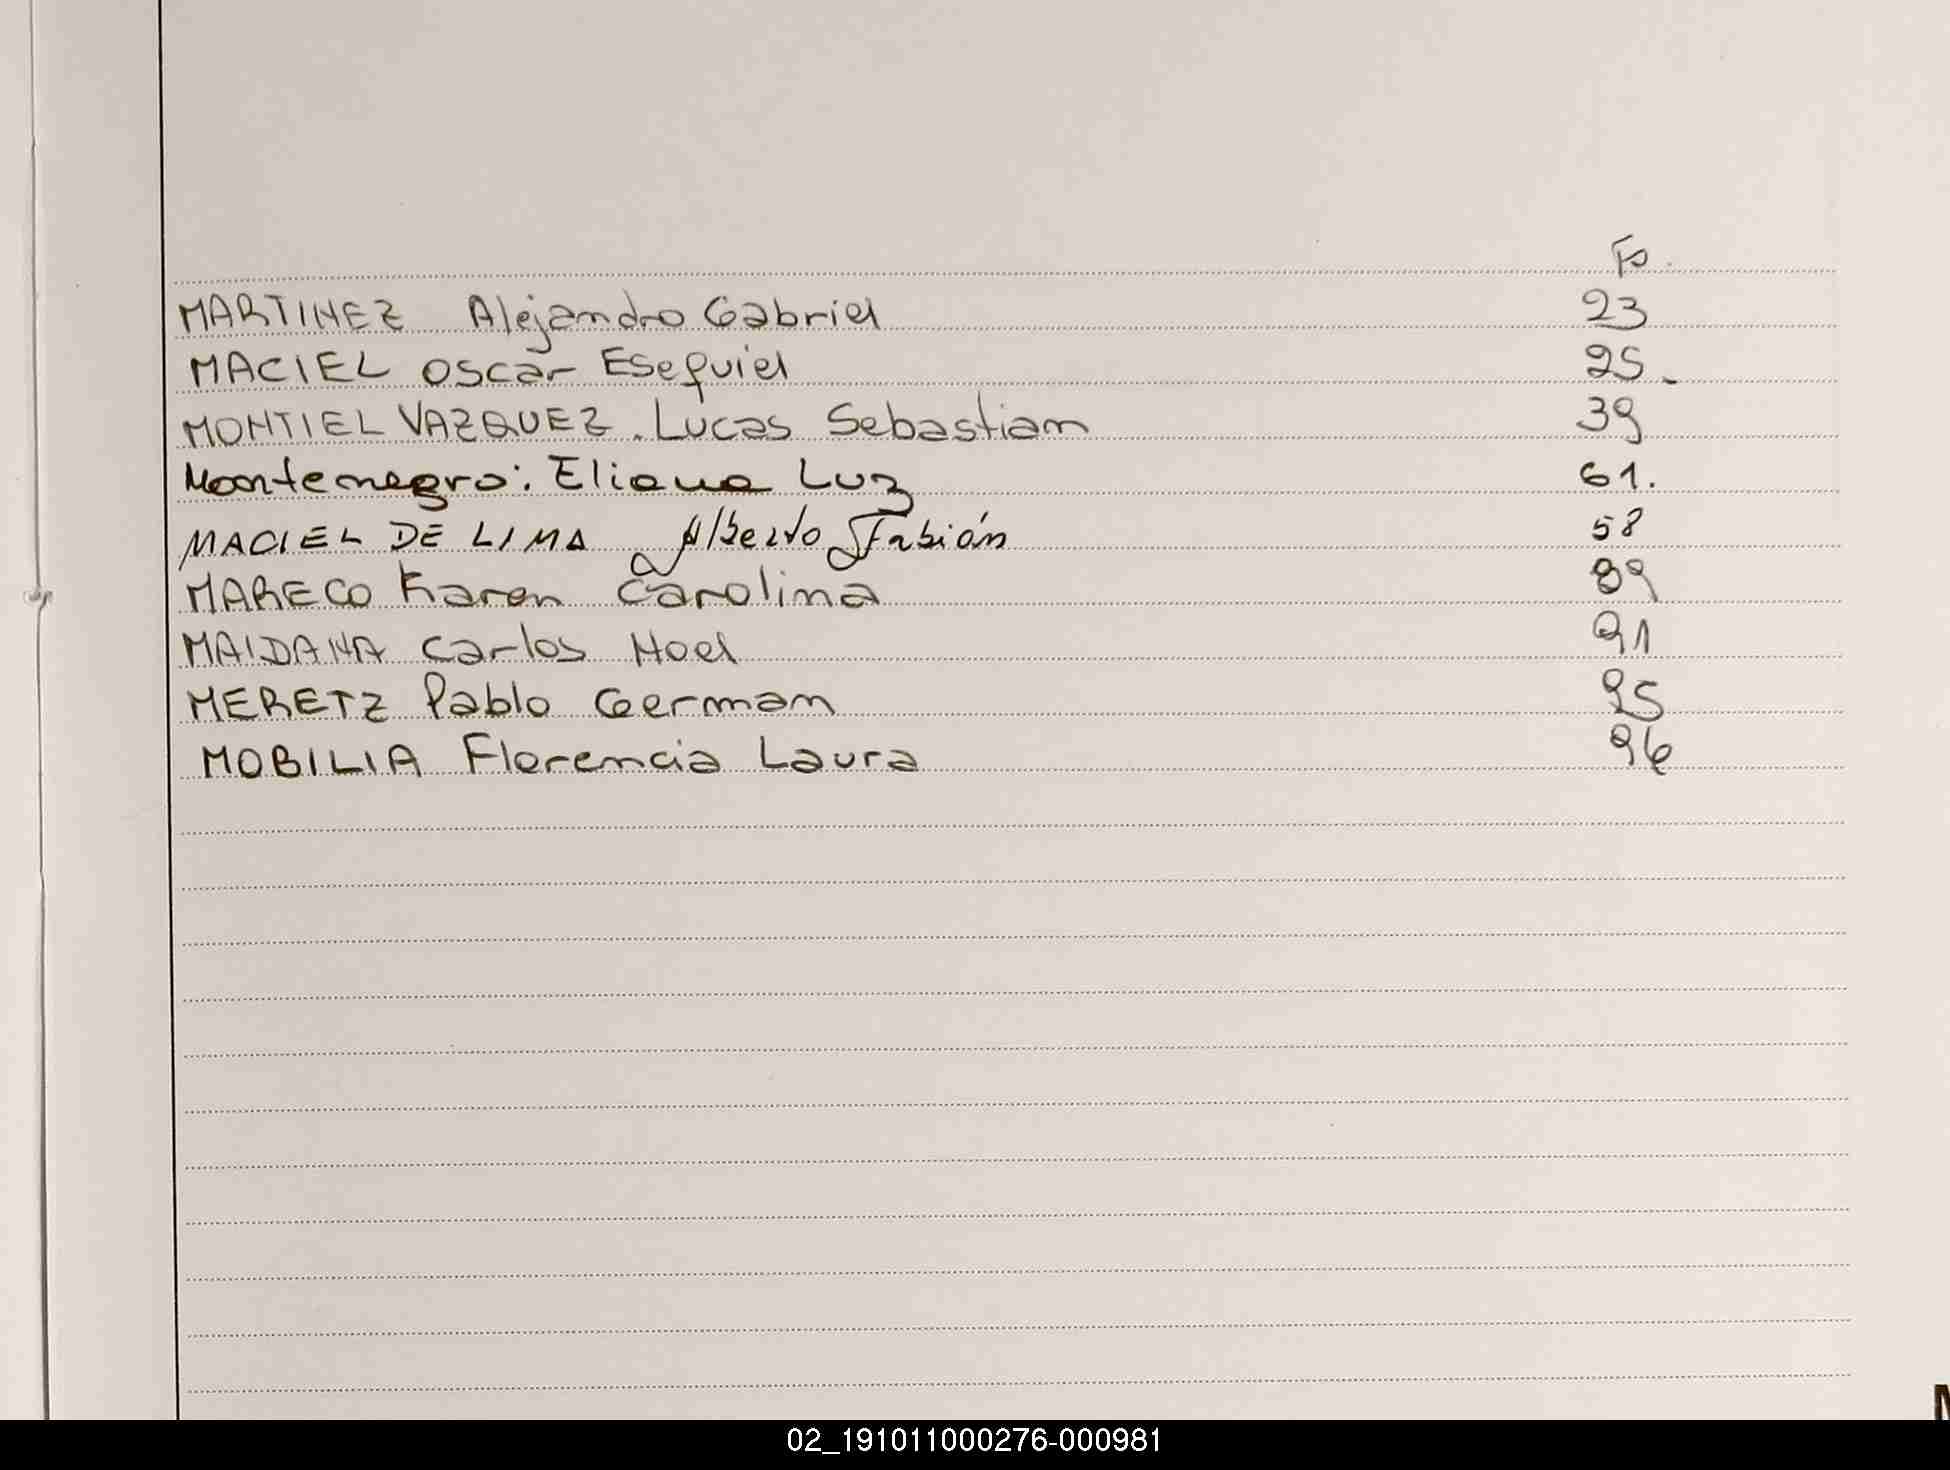 Fo.
MARTINEZ Alejandro Gabriel 23
MACIEL Oscar Esequiel 25.
MONTIEL VAZQUEZ. Lucas Sebastian 39
Montenegro: Eliana Luz 61.
MACIEL DE LIMA Alberto Fabián 58
MARECO Karen Carolina 89
MAIDANA Carlos Noel 91
MERETZ Pablo German 95
MOBILIA Florencia Laura 96
02_191011000276-000981